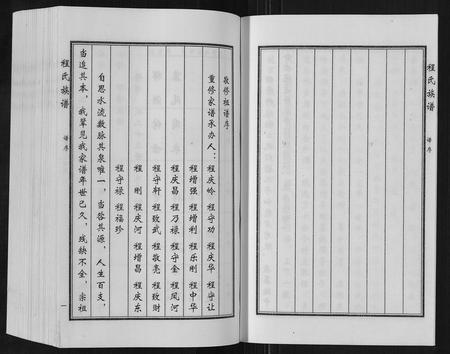 程氏族谱
谱序
敬修祖谱序
重修家谱承办人：程庆岭 程守功 程庆华 程守让
程增强 程增利 程乐刚 程中华
程庆昌 程乃禄 程守金 程凤河
程守轩 程致武 程敬亮 程致财
程刚 程庆河 程增昌 程庆东
程守禄 程福珍
自思水流数脉其泉唯一，当晳其源，人生百支，
当追其本，我辈见我家谱年世已久，残缺不全，宗祖
程氏族谱
谱序
一